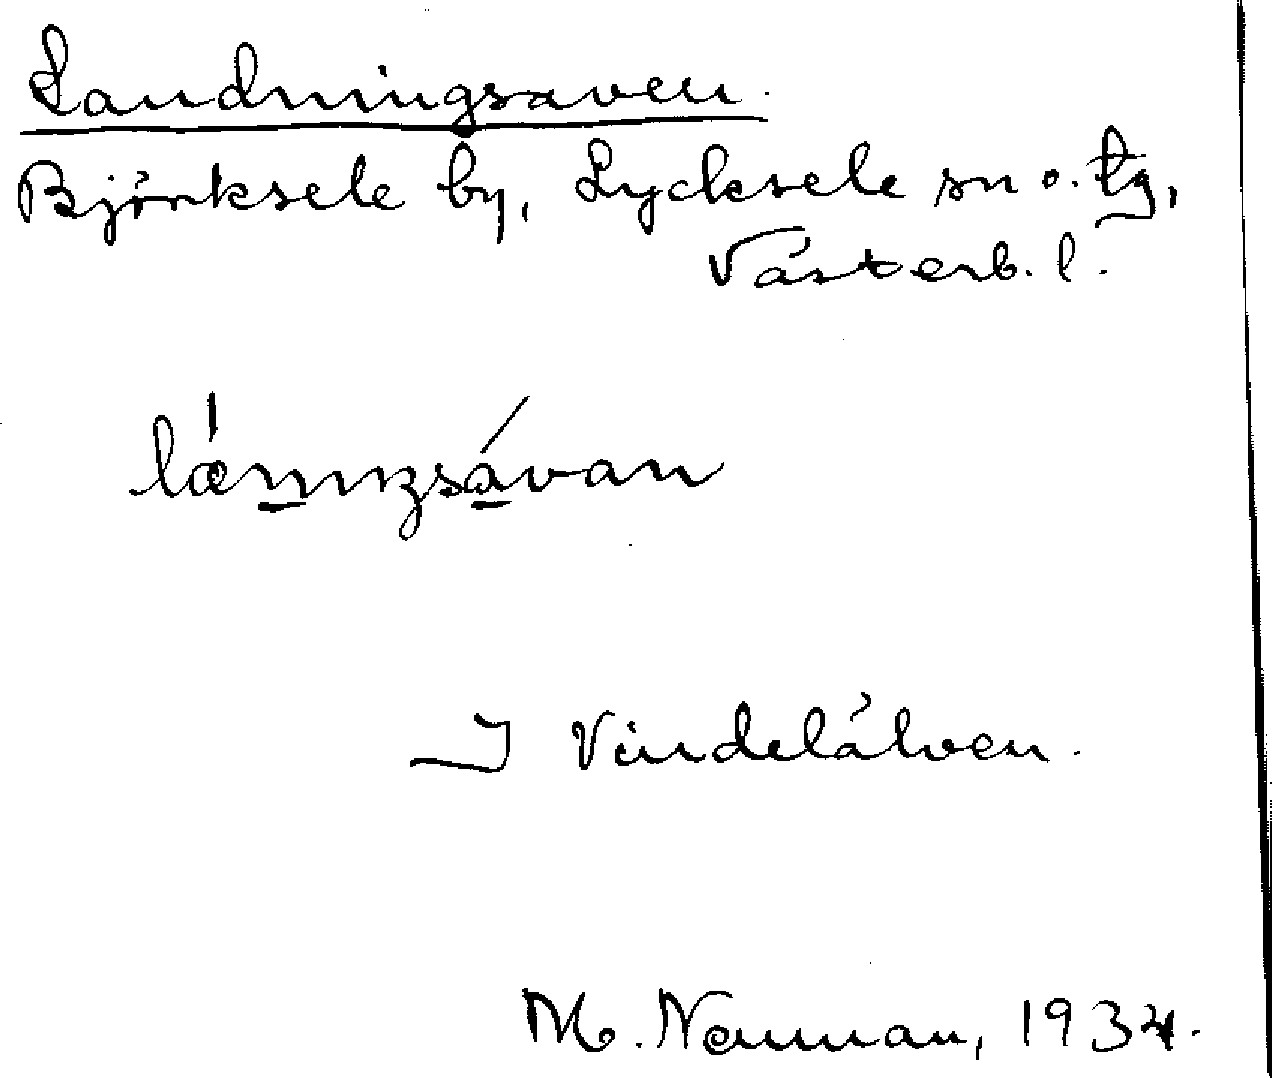 Landningsaven.
Björksele by, Lycksele sn o. tg,
Västerb. l.
I Vindelälven.
M. Nauman, 1934.